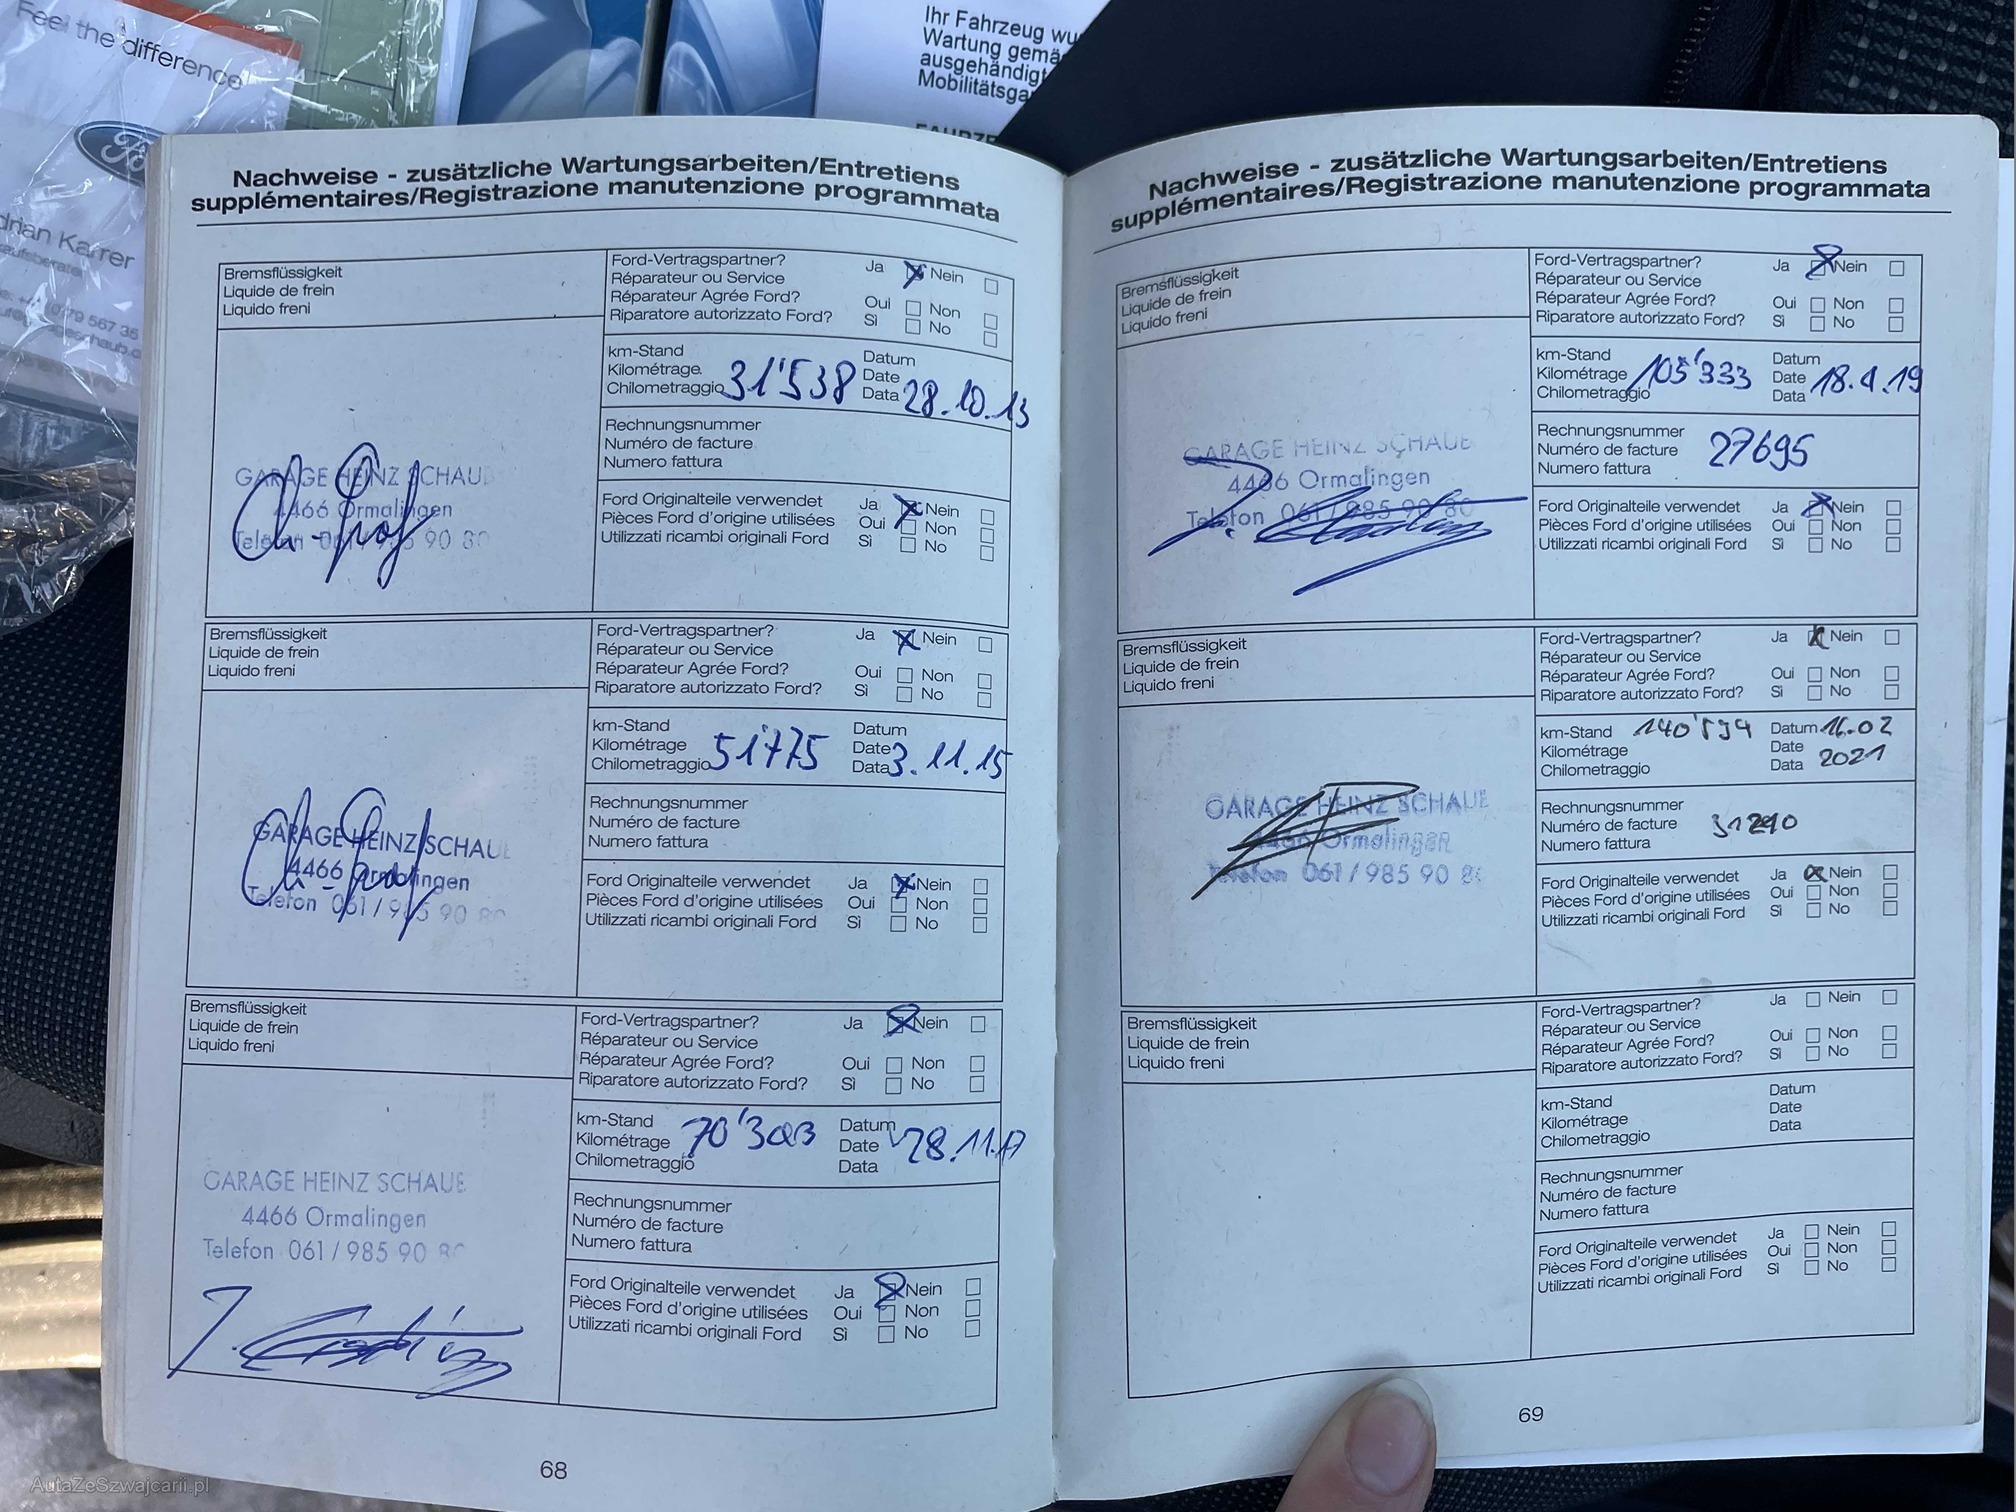 Feel the difference
Ford
drian Karrer
0179 567 35
Ihr Fahrzeug wu
Wartung gemä
ausgehändigt
Mobilitätsga
Nachweise - zusätzliche Wartungsarbeiten/Entretiens
supplémentaires/Registrazione manutenzione programmata
Bremsflüssigkeit
Liquide de frein
Liquido freni
Ford-Vertragspartner? Ja Nein
Réparateur ou Service
Réparateur Agrée Ford? Oui Non
Riparatore autorizzato Ford? Sì No
km-Stand Datum
Kilométrage Date
Chilometraggio 31'538 Data 28.10.13
Rechnungsnummer
Numéro de facture
Numero fattura
GARAGE HEINZ SCHAU
4466 Ormalingen
Telefon 061/985 90 80
Ford Originalteile verwendet Ja Nein
Pièces Ford d'origine utilisées Oui Non
Utilizzati ricambi originali Ford Sì No
Bremsflüssigkeit
Liquide de frein
Liquido freni
Ford-Vertragspartner? Ja Nein
Réparateur ou Service
Réparateur Agrée Ford? Oui Non
Riparatore autorizzato Ford? Sì No
km-Stand Datum
Kilométrage Date
Chilometraggio 51'775 Data 3.11.15
Rechnungsnummer
Numéro de facture
Numero fattura
GARAGE HEINZ SCHAU
4466 Ormalingen
Telefon 061/985 90 80
Ford Originalteile verwendet Ja Nein
Pièces Ford d'origine utilisées Oui Non
Utilizzati ricambi originali Ford Sì No
Bremsflüssigkeit
Liquide de frein
Liquido freni
Ford-Vertragspartner? Ja Nein
Réparateur ou Service
Réparateur Agrée Ford? Oui Non
Riparatore autorizzato Ford? Sì No
km-Stand Datum
Kilométrage Date 28.11.17
Chilometraggio Data
Rechnungsnummer
Numéro de facture
Numero fattura
GARAGE HEINZ SCHAUB
4466 Ormalingen
Telefon 061/985 90 80
Ford Originalteile verwendet Ja Nein
Pièces Ford d'origine utilisées Oui Non
Utilizzati ricambi originali Ford Sì No
68
Nachweise - zusätzliche Wartungsarbeiten/Entretiens
supplémentaires/Registrazione manutenzione programmata
Bremsflüssigkeit
Liquide de frein
Liquido freni
Ford-Vertragspartner? Ja Nein
Réparateur ou Service
Réparateur Agrée Ford? Oui Non
Riparatore autorizzato Ford? Sì No
km-Stand Datum
Kilométrage 105'333 Date 18.4.19
Chilometraggio Data
Rechnungsnummer
Numéro de facture 27695
Numero fattura
GARAGE HEINZ SCHAUB
4466 Ormalingen
Telefon 061/985 90 80
Ford Originalteile verwendet Ja Nein
Pièces Ford d'origine utilisées Oui Non
Utilizzati ricambi originali Ford Sì No
Bremsflüssigkeit
Liquide de frein
Liquido freni
Ford-Vertragspartner? Ja Nein
Réparateur ou Service
Réparateur Agrée Ford? Oui Non
Riparatore autorizzato Ford? Sì No
km-Stand Datum 16.02
Kilométrage Date 2021
Chilometraggio Data
Rechnungsnummer
Numéro de facture 31290
Numero fattura
GARAGE HEINZ SCHAUB
4466 Ormalingen
Telefon 061/985 90 80
Ford Originalteile verwendet Ja Nein
Pièces Ford d'origine utilisées Oui Non
Utilizzati ricambi originali Ford Sì No
Bremsflüssigkeit
Liquide de frein
Liquido freni
Ford-Vertragspartner? Ja Nein
Réparateur ou Service
Réparateur Agrée Ford? Oui Non
Riparatore autorizzato Ford? Sì No
km-Stand Datum
Kilométrage Date
Chilometraggio Data
Rechnungsnummer
Numéro de facture
Numero fattura
Ford Originalteile verwendet Ja Nein
Pièces Ford d'origine utilisées Oui Non
Utilizzati ricambi originali Ford Sì No
69
AutaZeSzwajcarii.pl